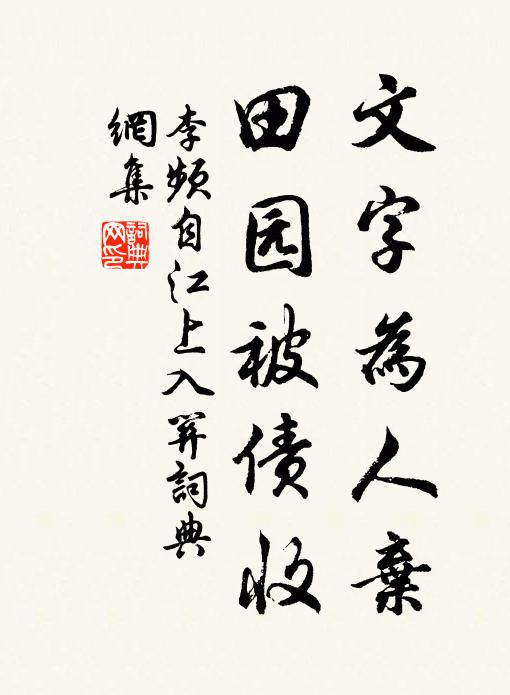 文字為人棄
田园被债收
李频自江上入關詞典
網集
詞典
网印